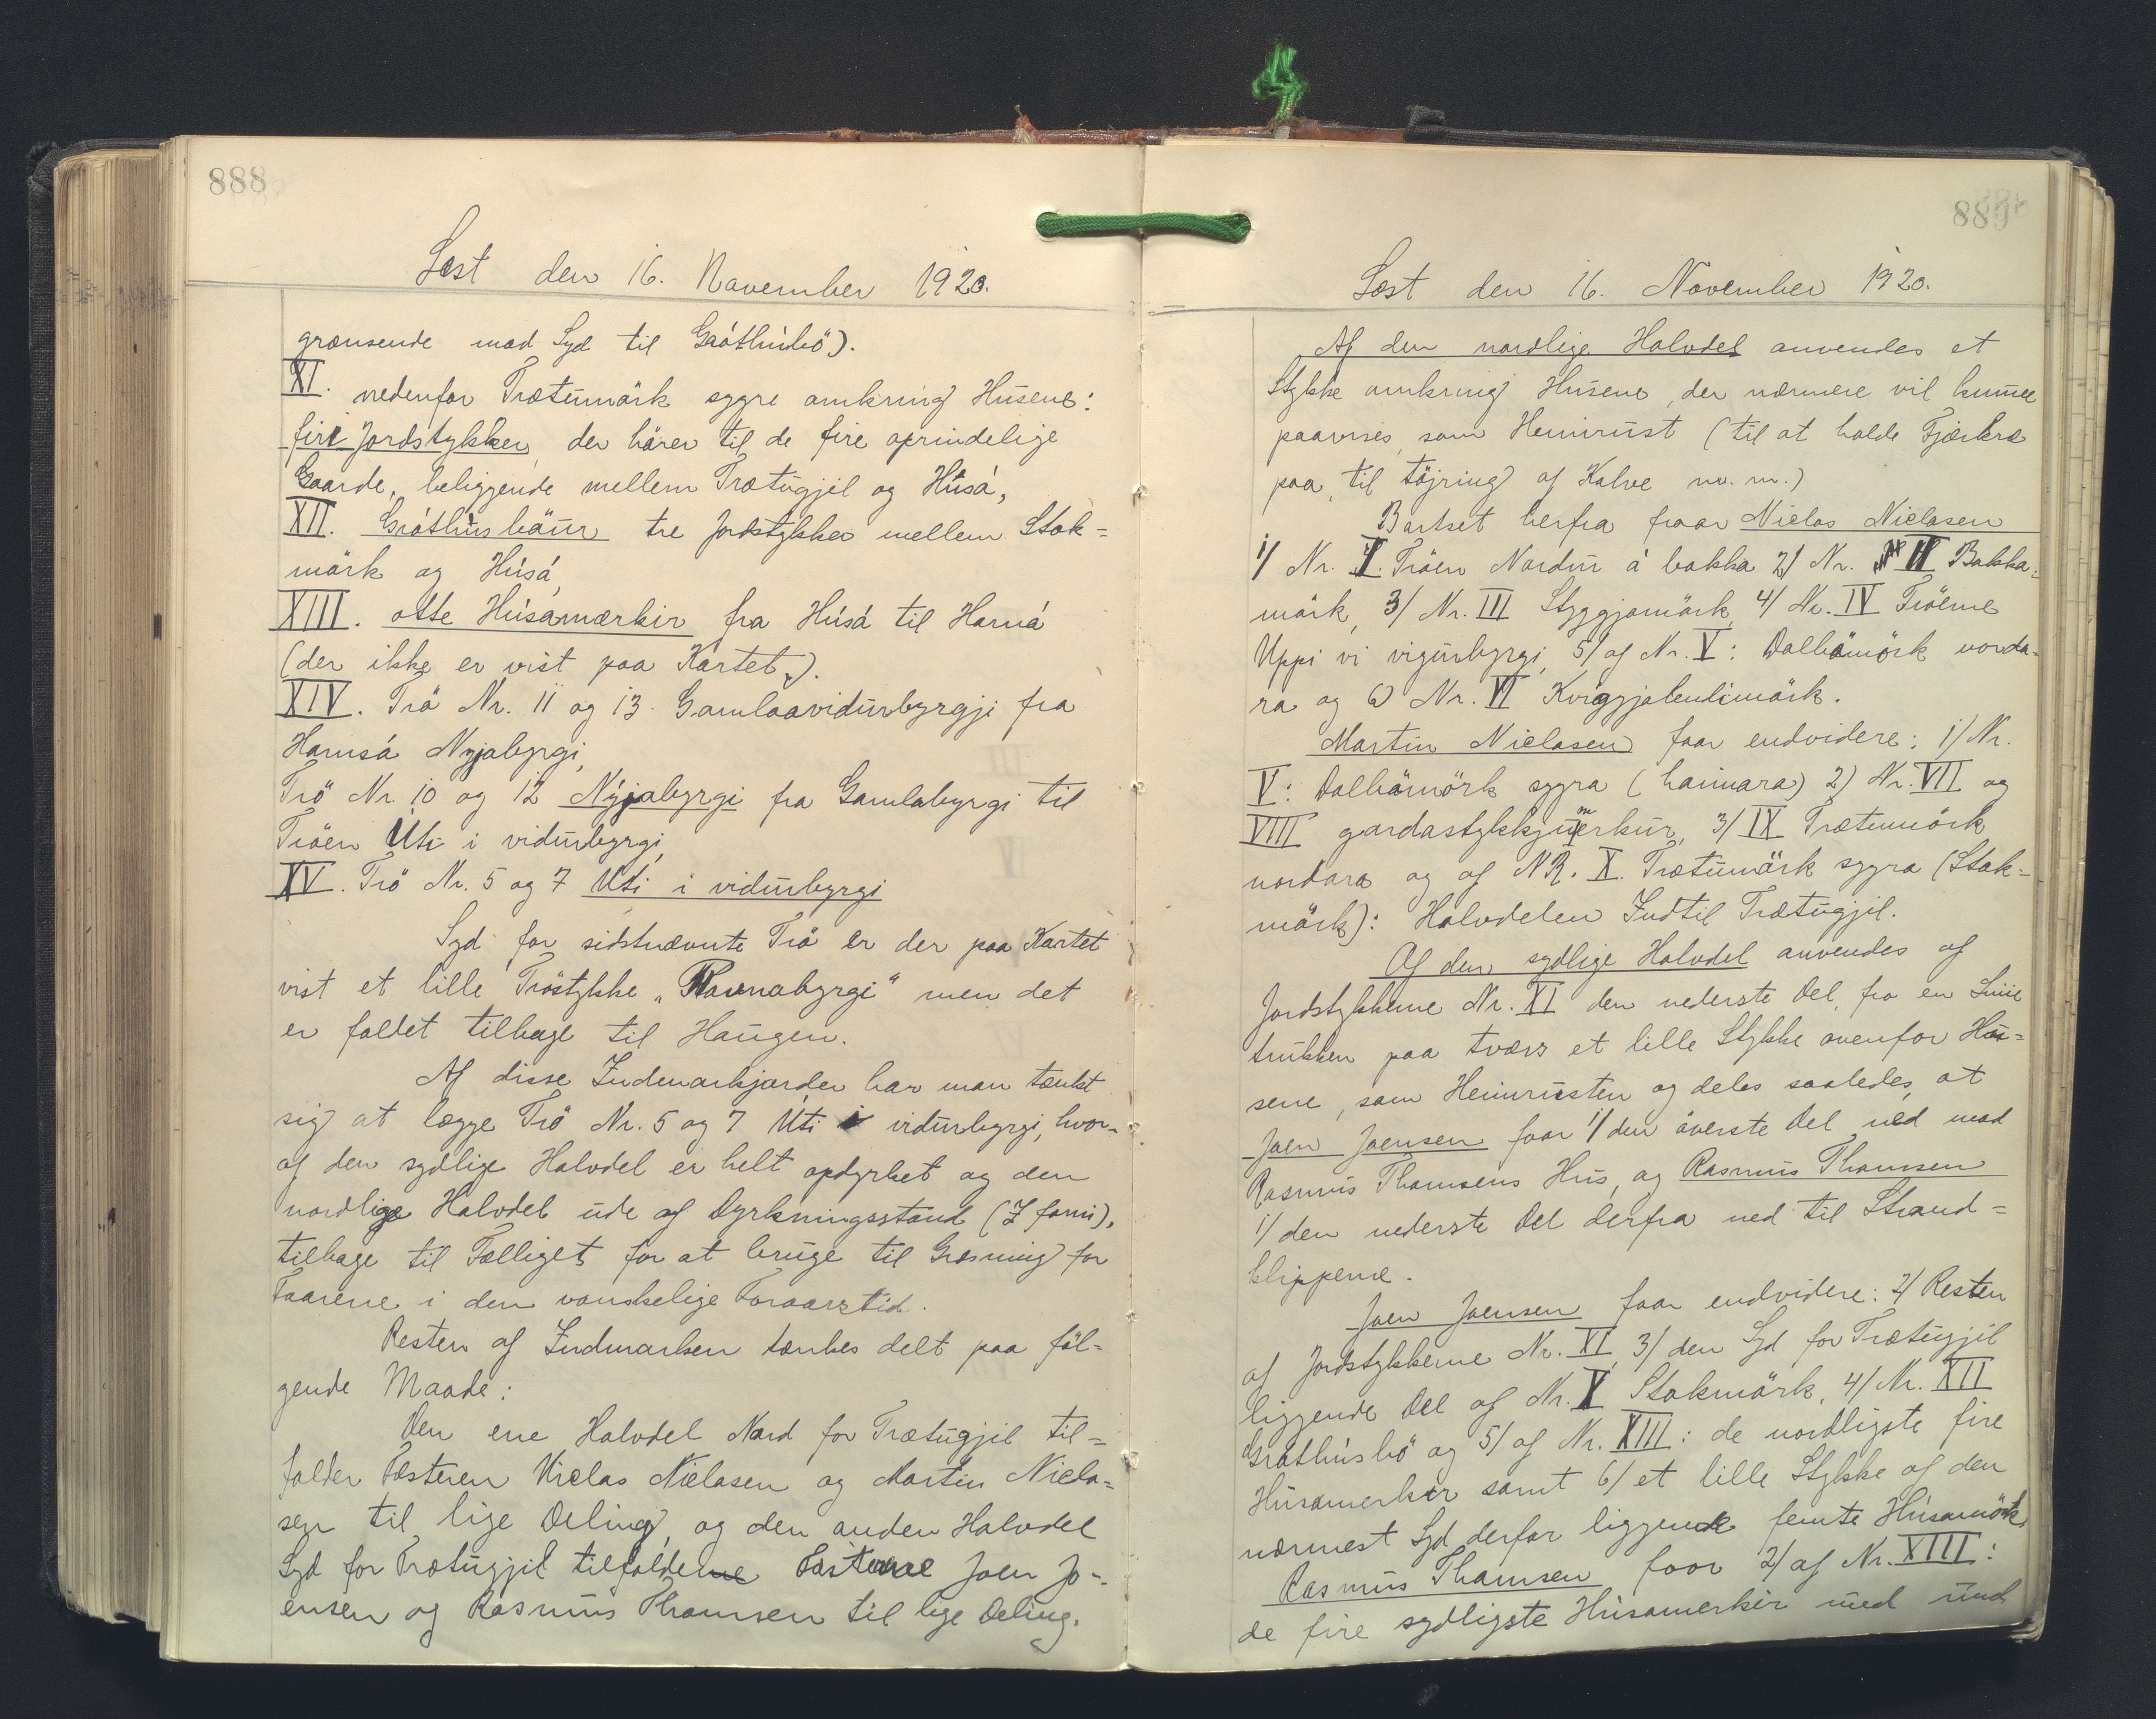 888
Læst den 16. November 1920.
grænsende mod Syd til Gróthúsbö).
XI. nedenfor Trætumörk syðre omkring Husene:
fire Jordstykker, der hörer til de fire oprindelige
Gaarde, beliggende mellem Trætugjil og Húsá,
XII. Gróthúsbäur tre Jordstykker mellem Stok=
mörk og Húsá,
XIII. otte Húsamerkir fra Húsá til Harná
(der ikke er vist paa Kartet).
XIV. Trö Nr. 11 og 13. Gamlaavidurbyrgji fra
Harnsá Nyjabyrgi,
Trö Nr. 10 og 12 Nýjabyrgi fra Gamlabyrgi til
Tröen Uti i vidurbyrgi,
XV. Trö Nr. 5 og 7 Uti i vidurbyrgi
Syd for sidstnævnte Trö er der paa Kartet
vist et lille Tröstykke „Ravnabyrgi“ men det
er faldet tilbage til Haugen.
Af disse Indmarkjorder har man tænkt
sig at lægge Trö Nr. 5 og 7 Úti i vidurbyrgi, hvor-
af den sydlige Halvdel er helt opdyrket og den
nordlige Halvdel ude af Dyrkningsstand (I forni),
tilbage til Fælliget for at bruge til Græsning for
Faarene i den vanskelige Foraarstid.
Resten af Indmarken tænkes delt paa föl=
gende Maade:
Den ene Halvdel Nord for Trætugjil til=
falder Fæsteren Niclas Niclasen og Martin Nicla=
sen til lige Deling, og den anden Halvdel
Syd for Trætugjil tilfalder Fæsterne Joen Jo-
ensen og Rasmus Thomsen til lige Deling.
889
Læst den 16. November 1920.
Af den nordlige Halvdel anvendes et
Stykke omkring Husene, der nærmere vil kunne
paavises, som Heimrust (til at holde Fjerkræ
paa, til töjring af Kalve m. m.)
Bortset herfra faar Niclas Niclasen
1/ Nr. I. Tröen Nordur á bakka 2/ Nr. II Bakka=
mörk, 3/ Nr. III Styggjamörk, 4/ Nr. IV Tröerne
Uppi vi vigurbyrgi, 5/ af Nr. V: Dalbämörk norda-
ra og 6) Nr. VI Kviggjabeulimörk.
Martin Niclasen faar endvidere: 1/ Nr.
V: Dalbämörk syðra (haimara) 2) Nr. VII og
VIII gardastykkjumerkur, 3/ IX Trætumörk
nordara og af NR. X. Trætumörk syðra (Stok=
mörk): Halvdelen Indtil Trætugjil.
Af den sydlige Halvdel anvendes af
Jordstykkerne Nr. XI den nederste Del, fra en Linie
trukken paa tværs et lille Stykke ovenfor Hu=
sene, som Heimrusten og deles saaledes, at
Joen Joensen faar 1/ den överste Del ned mod
Rasmus Thomsens Hus, og Rasmus Thomsen
1/ den nederste Del derfra ned til Strand=
klipperne.
Joen Joensen faar endvidere: 2/ Resten
af Jordstykkerne Nr. XI, 3/ den Syd for Trætugjil
liggende Del af Nr. X Stokmörk, 4/ Nr. XII
Gróthúsbö og 5/ af Nr. XIII: de nordligste fire
Húsamerkir samt 6/ et lille Stykke af den
nærmest Syd derfor liggende femte Húsamörk
Rasmus Thomsen faar 2/ af Nr. XIII:
de fire sydligste Húsamerkir med und